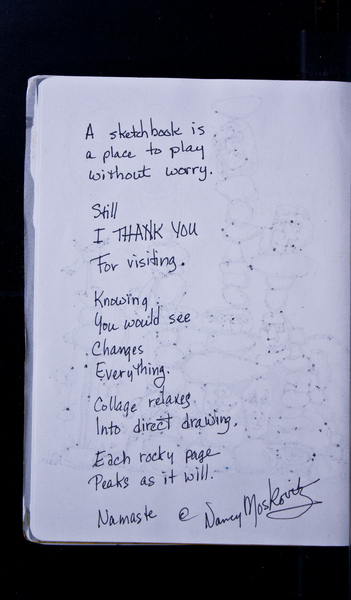 A sketchbook is
a place to play
without worry.
Still
I THANK YOU
For visiting.
Knowing
You would see
Changes
Everything.
Collage relaxes
Into direct drawing.
Each rocky page
Peaks as it will.
Namaste @ Nancy Moskovitz